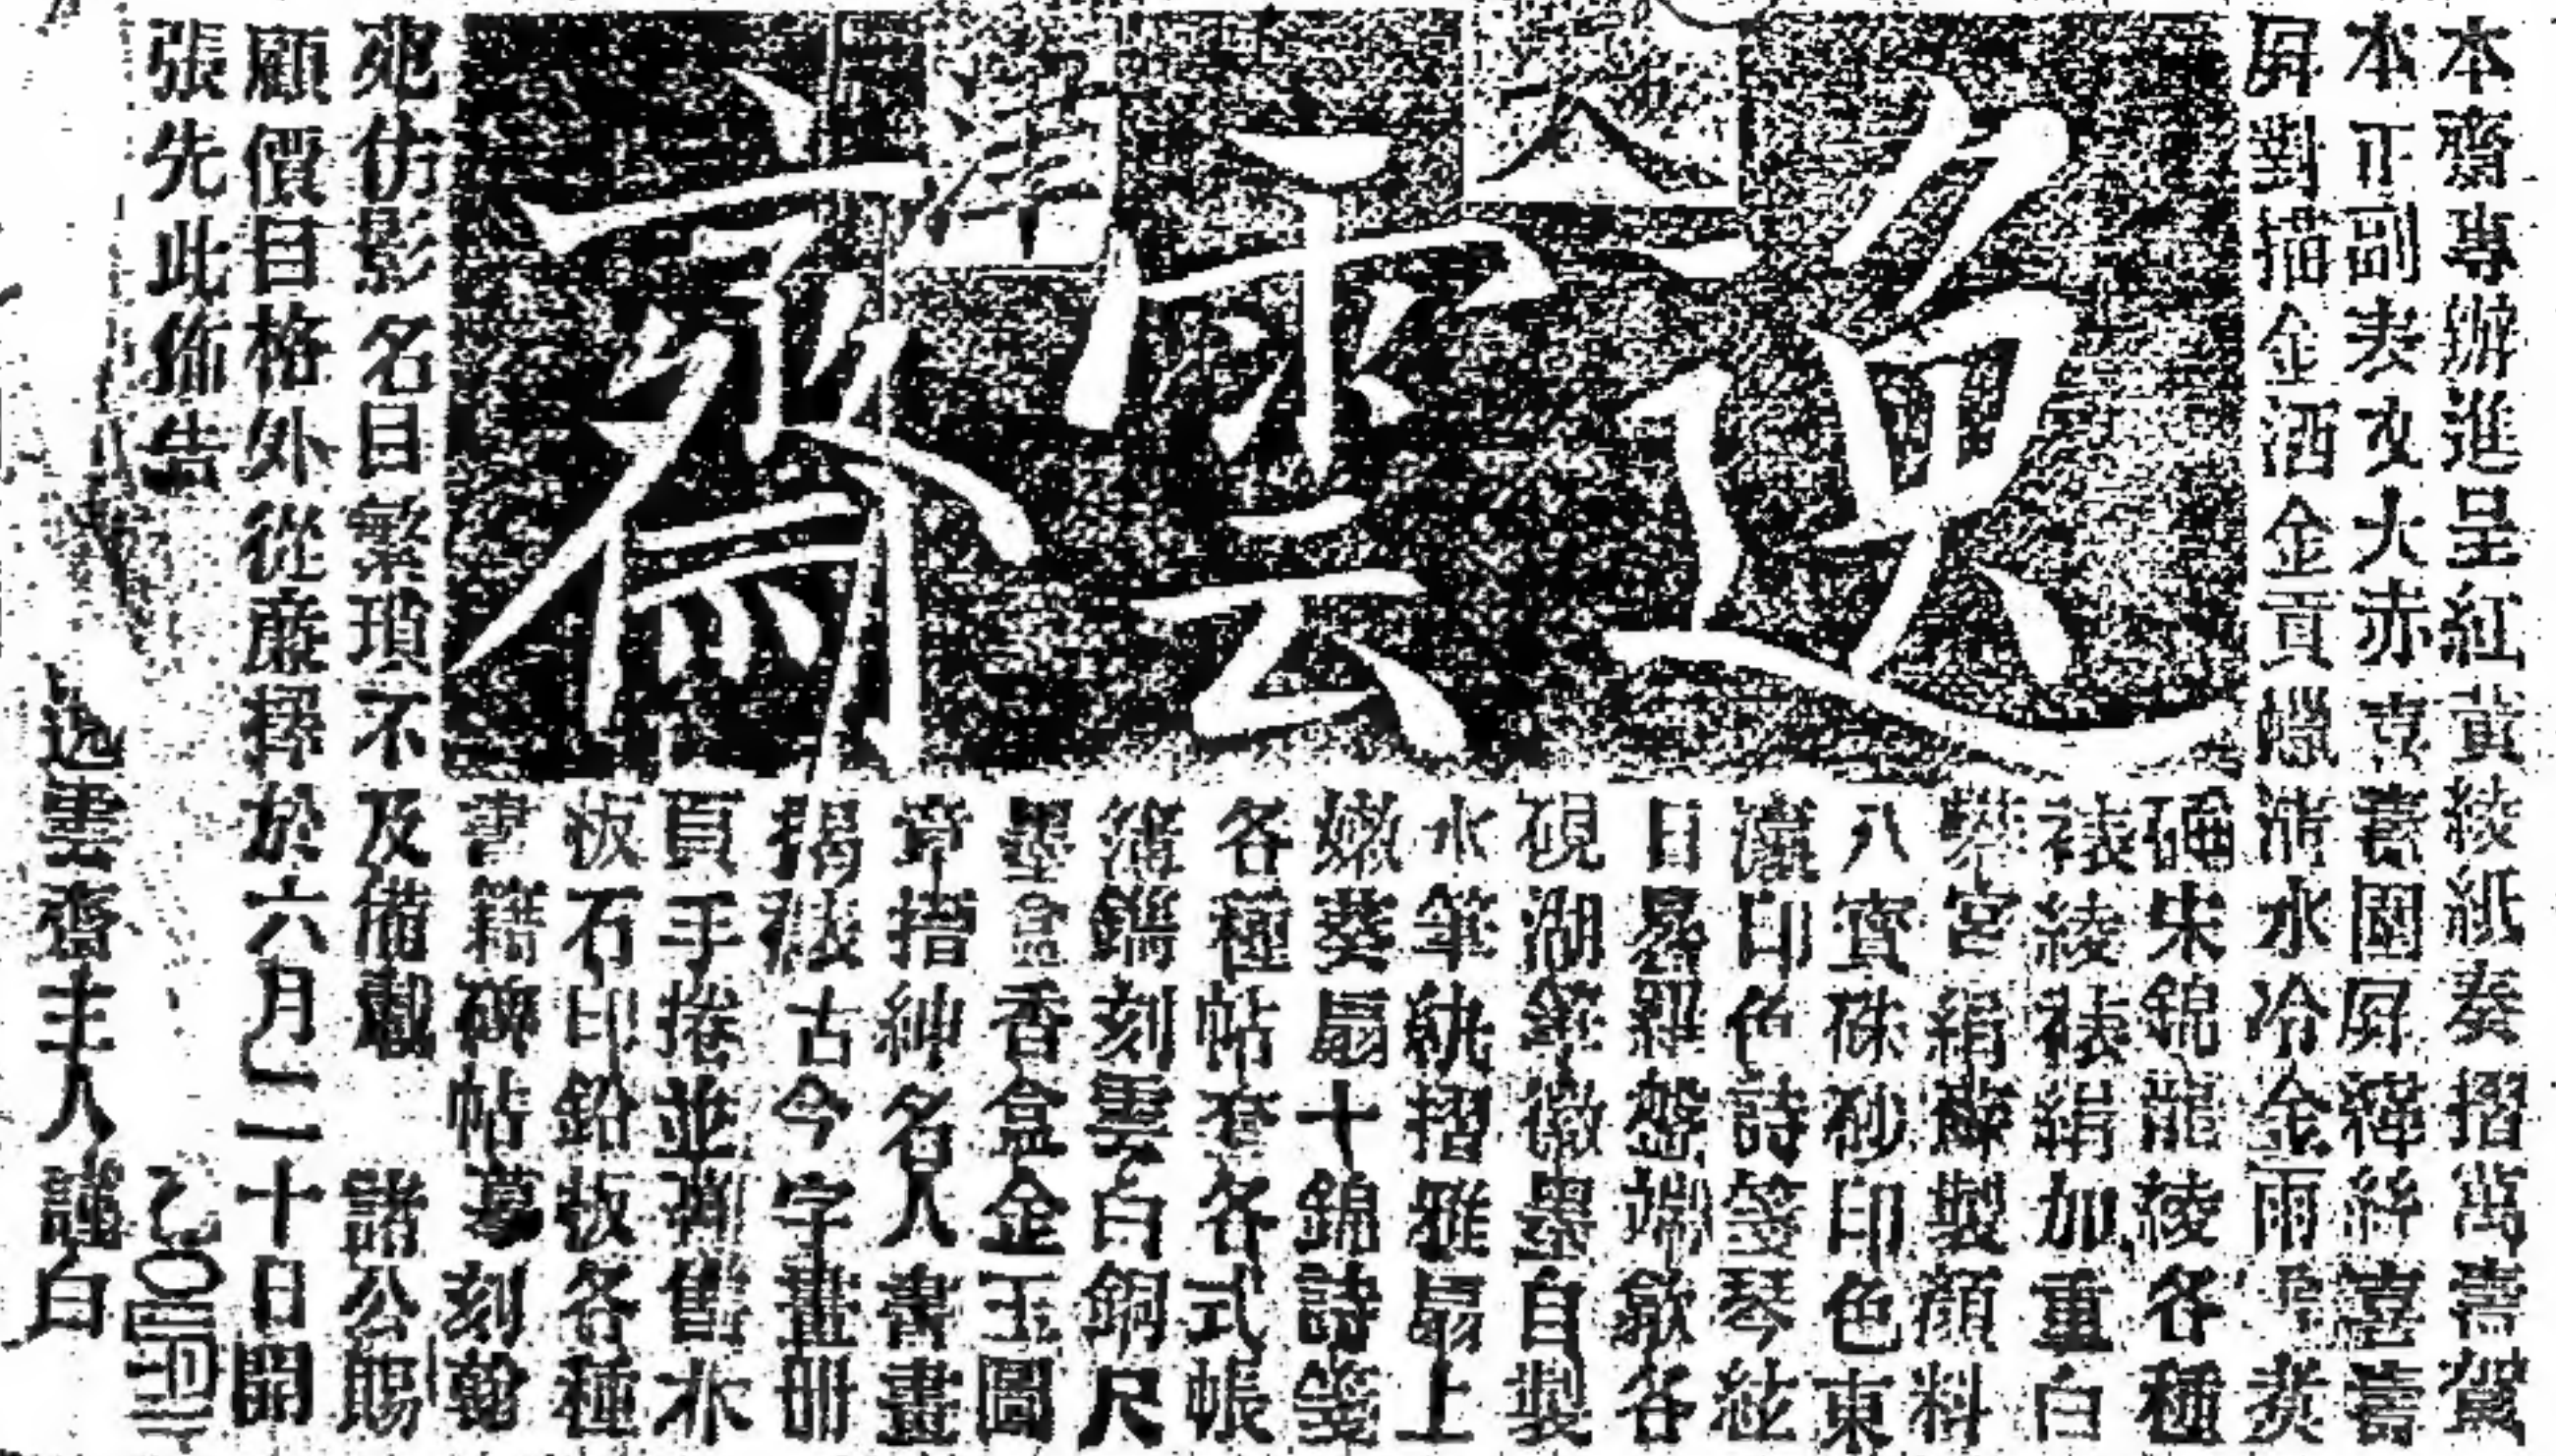 本齋專辦進呈紅黃綾紙奏摺萬壽賀
本正副表文大赤壽圍屏緙絲喜壽
屏對描金洒金貢蠟清水冷金雨
逸雲齋
天津
硃錦龍綾各種
裱綾裱絹加重白
礬宮絹蘇製顏料
八寶硃砂印色東
瀛印色詩箋琴絃
日晷羅盤端歙各
硯湖筆徽墨自製
水筆紈摺雅扇上
嫩葵扇十錦詩箋
各種帖套各式帳
簿鐫刻雲白銅尺
墨盒香盒金玉圖
章搢紳名人書畫
揭裱古今字畫册
頁手捲並新舊木
板石印鉛板各種
書籍碑帖摹刻翰
苑仿影名目繁瑣不及備載 諸公賜
顧價目格外從廉擇於六月二十日開
張先此佈告
逸雲齋主人謹白